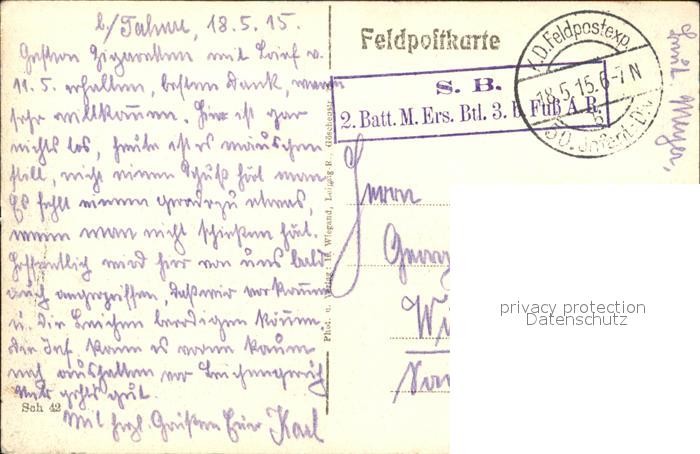 b/Tahure, 18.5.15.
Gestern Zigaretten mit Brief v.
11.5. erhalten, besten Dank, waren
sehr willkommen. Hier ist gar
nichts los, heute ist es mäuschen
still, nicht einen Schuß hört man
Es fehlt einem geradezu etwas,
wenn man nicht schießen hört.
Hoffentlich wird hier von uns bald
auch angegriffen, daß wir vorkommen
u. die Leichen beerdigen können.
die Inf. kann es vorne kaum
noch aushalten vor Leichengeruch
Mir gehts gut.
Mit herzl. Grüßen Euer Karl
Sch 42
Phot. u. Verlag: H. Wiegand, Leipzig-R., Göschenstr.
Feldpostkarte
S. B.
2. Batt. M. Ers. Btl. 3. b. Fuß A. R.
K.D. Feldpostexp.
18.5.15. 6-7 N
b
30. Infant.-Div.
Herrn
Georg
Wi
privacy protection
Datenschutz